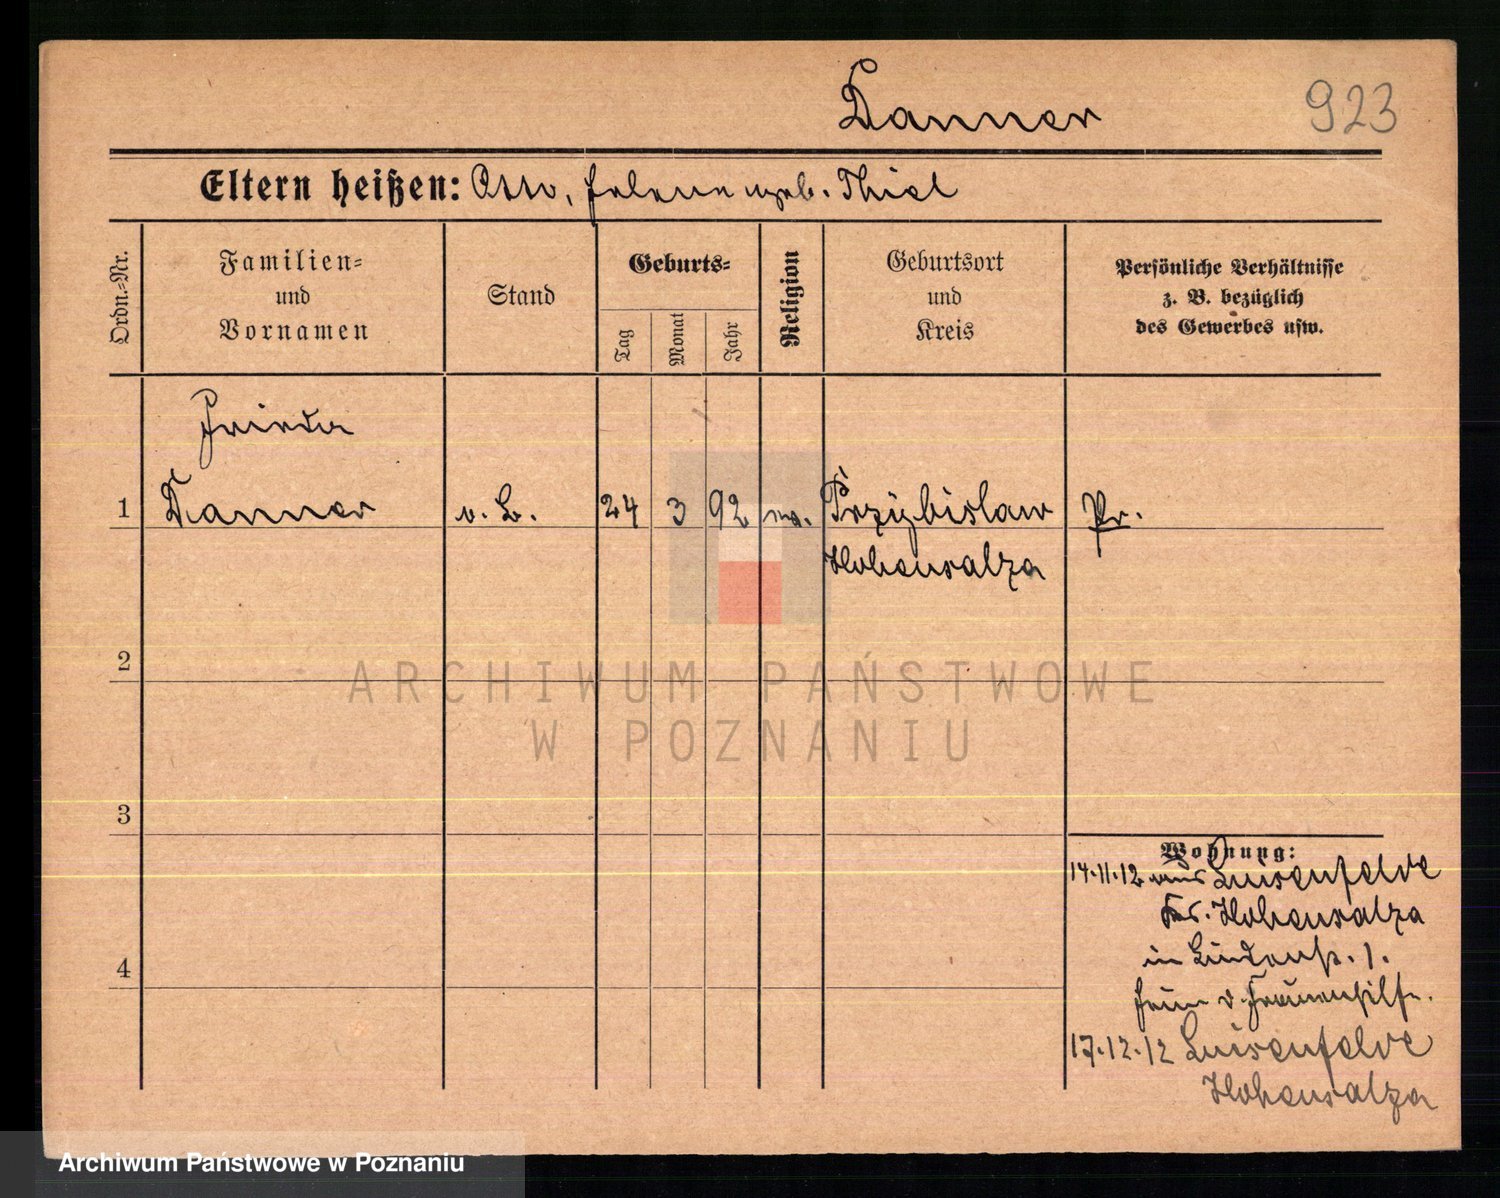 Danner
923
Eltern heißen: Otto, Helene geb. Thiel
Ordn.-Nr.
Familien-
und
Vornamen
Stand
Geburts-
Tag
Monat
Jahr
Religion
Geburtsort
und
Kreis
Persönliche Verhältnisse
z. B. bezüglich
des Gewerbes usw.
Frieda
1 Danner o. B. 24 3 92 ev. Przybislaw Pr.
Hohensalza
2
ARCHIWUM PAŃSTWOWE
W POZNANIU
3
Wohnung:
14.11.12 aus Luisenfelde
Krs. Hohensalza
in Lindenstr. 1.
Heim d. Frauenhilfe.
4
17.12.12 Luisenfelde
Hohensalza
Archiwum Państwowe w Poznaniu